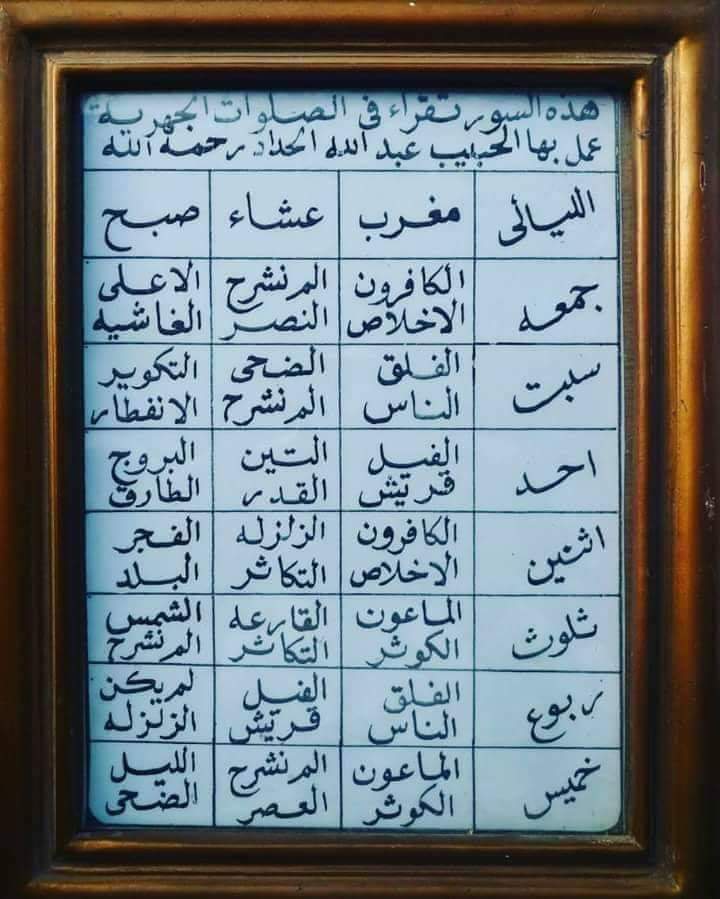 هذه السور تقراء في الصلوات الجهرية
عمل بها الحبيب عبد الله الحداد رحمه الله
الليالي مغرب عشاء صبح
جمعه الكافرون الم نشرح الاعلى
الاخلاص النصر الغاشيه
سبت الفلق الضحى التكوير
الناس الم نشرح الانفطار
احد الفيل التين البروج
قريش القدر الطارق
اثنين الكافرون الزلزله الفجر
الاخلاص التكاثر البلد
ثلوث الماعون القارعه الشمس
الكوثر التكاثر الم نشرح
ربوع الفلق الفيل لم يكن
الناس قريش الزلزله
خميس الماعون الم نشرح الليل
الكوثر العصر الضحى